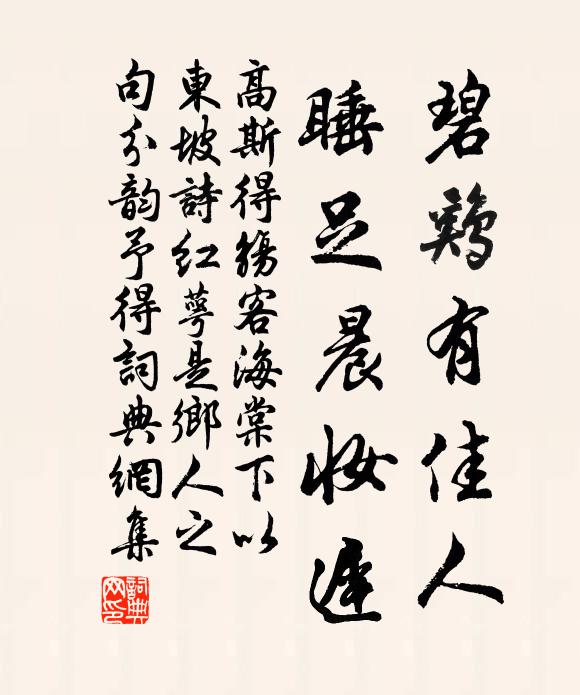 碧鷄有佳人
睡足晨妝遲
高斯得觴客海棠下以
東坡詩紅萼是鄉人之
句分韵予得詞典網集
詞典网印